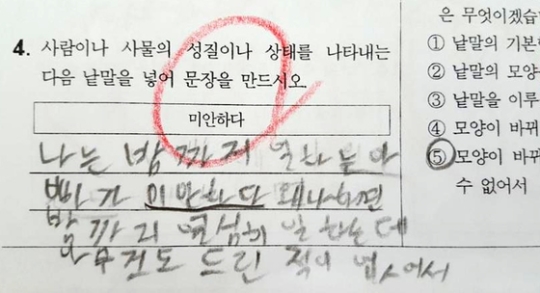 4. 사람이나 사물의 성질이나 상태를 나타내는
다음 낱말을 넣어 문장을 만드시오.
미안하다
나는 밤까지 일하는 아
빠가 미안하다 왜냐하면
밤까지 열심히 일하는데
아무것도 드린 적이 없어서
은 무엇이겠습
① 낱말의 기본
② 낱말의 모양
③ 낱말을 이루
④ 모양이 바뀌
⑤ 모양이 바꾸
수 없어서